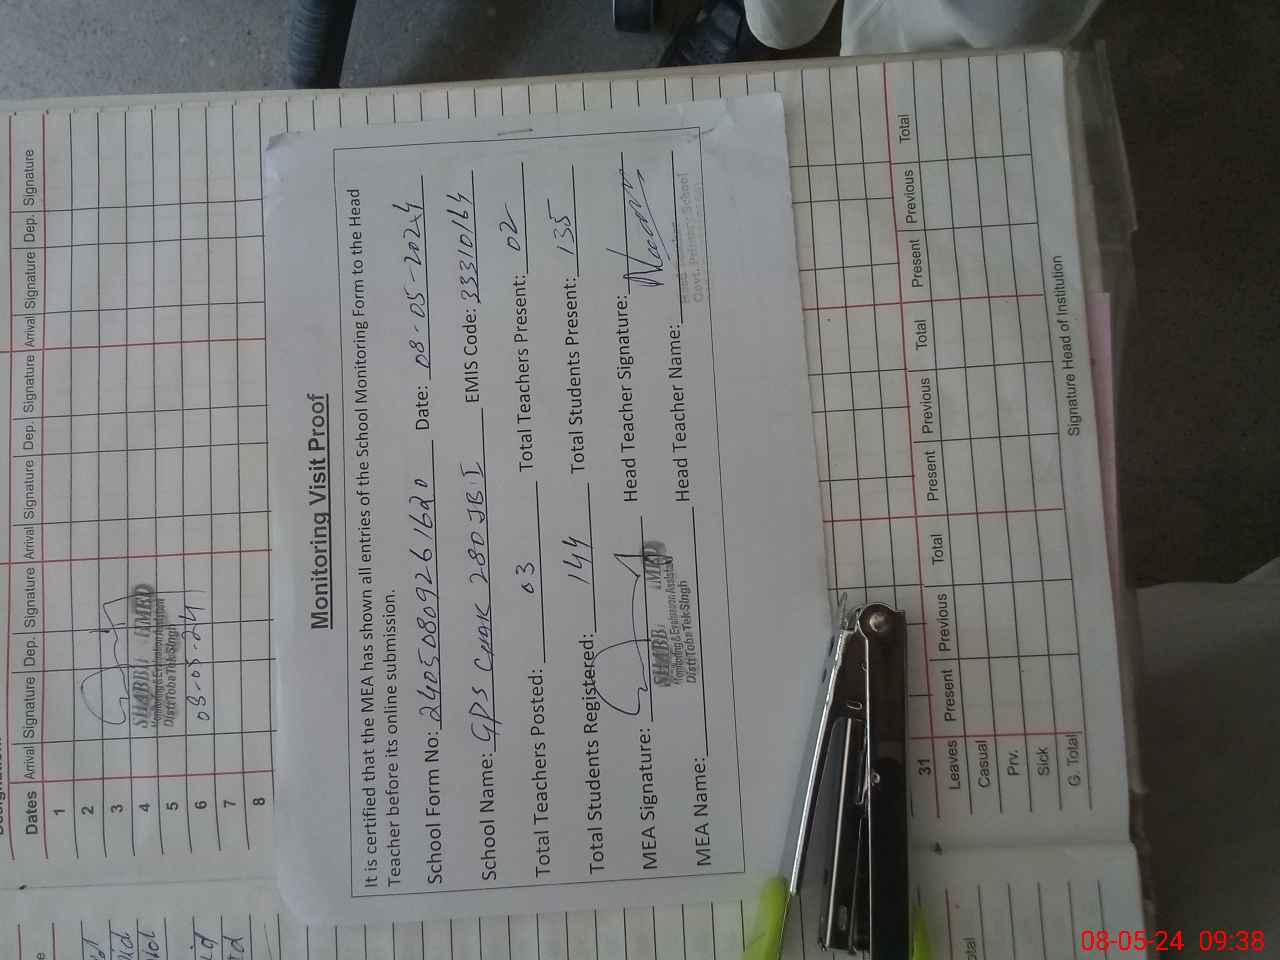 Dates Arrival Signature Dep. Signature Arrival Signature Dep. Signature Arrival Signature Dep. Signature
1
2
3
4
5
6
7
8
Monitoring & Evaluation Assistant
Distt Toba Tek Singh
Monitoring Visit Proof
It is certified that the MEA has shown all entries of the School Monitoring Form to the Head
Teacher before its online submission.
School Form No: 24050809261620 Date: 08-05-2024
School Name: GPS Chak 280 JB I EMIS Code: 33310164
Total Teachers Posted: 03 Total Teachers Present: 02
Total Students Registered: 144 Total Students Present: 135
MEA Signature: Head Teacher Signature:
MEA Name: Head Teacher Name:
Monitoring & Evaluation Assistant
Distt Toba Tek Singh
31
Leaves Present Previous Total Present Previous Total Present Previous Total
Casual
Prv.
Sick
G. Total
Signature Head of Institution
08-05-24 09:38